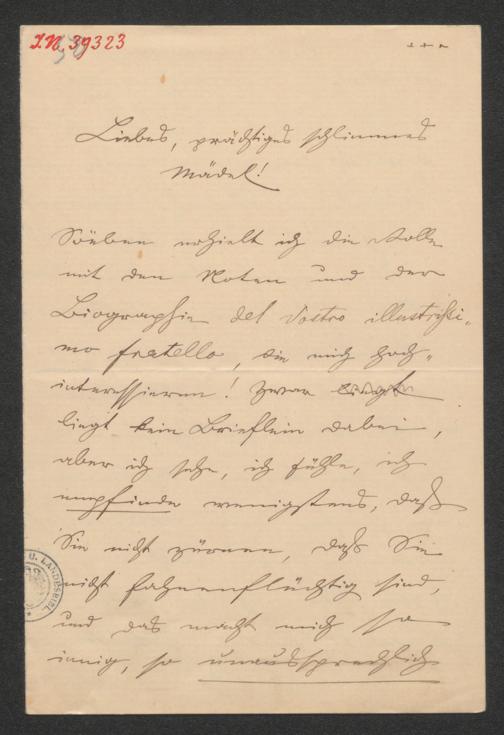 I.N. 39323
Liebes, prächtiges schlimmes
Mädel!
Soeben erhielt ich die Rolle
mit den Noten und der
Biographie del Vostro illustrissi-
mo fratello, die mich hoch-
interessieren! Zwar
liegt kein Brieflein dabei,
aber ich sehe, ich fühle, ich
empfinde wenigstens, daß
Sie nicht zürnen, daß Sie
nicht fahnenflüchtig sind,
und das macht mich so
innig, so unaussprechlich
U. LANDESBIBL